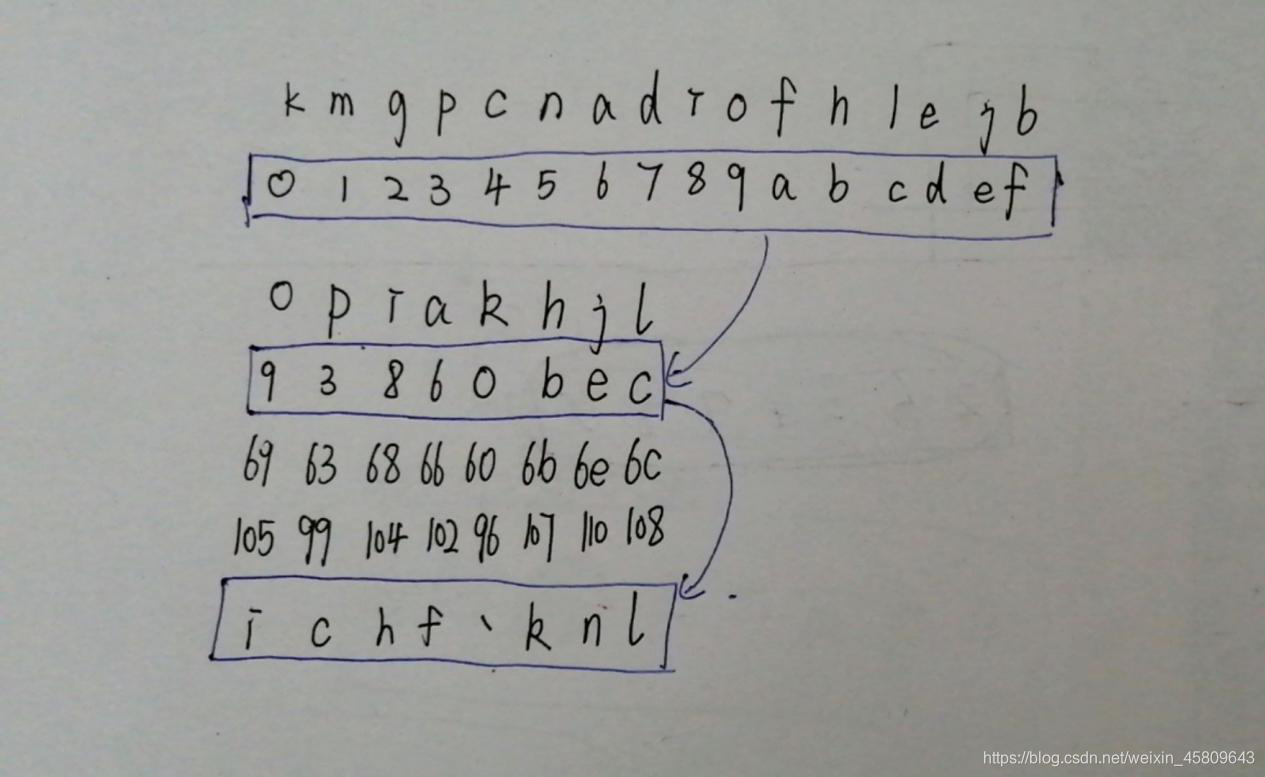 k m g p c n a d i o f h l e j b
0 1 2 3 4 5 6 7 8 9 a b c d e f
o p i a k h j l
9 3 8 6 0 b e c
69 63 68 66 60 6b 6e 6c
105 99 104 102 96 107 110 108
i c h f ` k n l
https://blog.csdn.net/weixin_45809643